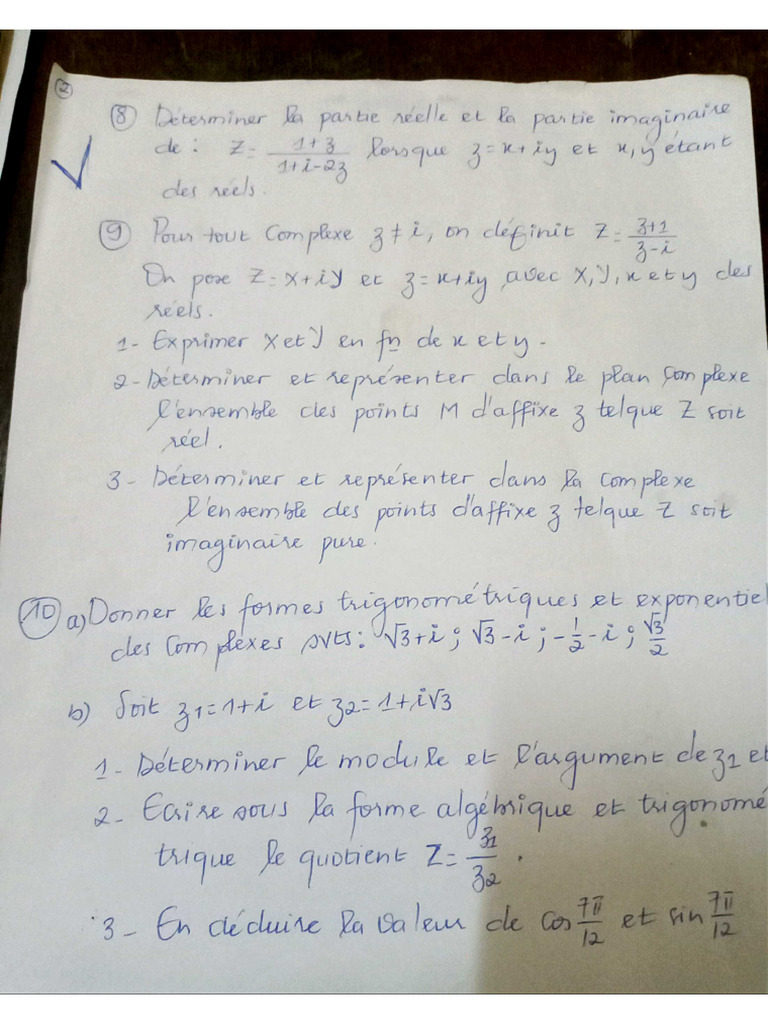 ②
⑧ Déterminer la partie réelle et la partie imaginaire
de : Z = \frac{1+z}{1+i-2z} lorsque z = x + iy et x, y étant
des réels.
⑨ Pour tout complexe z ≠ i, on définit Z = \frac{z+1}{z-i}
On pose Z = X + iY et z = x + iy avec X, Y, x et y des
réels.
1 - Exprimer X et Y en fn de x et y -
2 - Déterminer et représenter dans le plan complexe
l'ensemble des points M d'affixe z tel que Z soit
réel.
3 - Déterminer et représenter dans la complexe
l'ensemble des points d'affixe z tel que Z soit
imaginaire pure.
⑩ a) Donner les formes trigonométriques et exponentiel
des complexes svts : √3 + i ; √3 - i ; -\frac{1}{2} - i ; \frac{√3}{2}
b) Soit z1 = 1 + i et z2 = 1 + i√3
1 - Déterminer le module et l'argument de z1 et
2 - Ecrire sous la forme algébrique et trigonomé
trique le quotient Z = \frac{z1}{z2} .
3 - En déduire la valeur de cos \frac{7π}{12} et sin \frac{7π}{12}